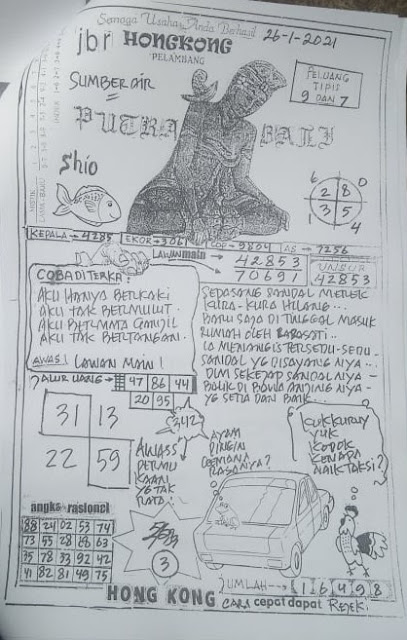 Semoga Usaha Anda Berhasil
26-1-2021
jbr HONGKONG
PELAMBANG
SUMBER AIR
PELUANG
TIPIS
9 DAN 7
PUTRA BALI
Shio
6 0
2 8
3 5
1 4
KEPALA → 4285
EKOR → 3061
COP → 9804
AS → 7256
LAWAN main
42853
70691
UNSUR
42853
COBA DI TERKA:
AKU HANYA BERKAKI
AKU TAK BERMULUT.
AKU BERMATA GANJIL
AKU TAK BERTANGAN.
AWAS! LAWAN MAIN!
SEPASANG SANDAL MEREK
KURA-KURA HILANG...
BARU SAJA DI TINGGAL MASUK
RUMAH OLEH RAROSATI..
IA MENANGIS TERSEDU-SEDU-
SANDAL YG DISAYANG NIYA...
DLM SEKEJAP SANDAL NIYA-
BALIK DI BAWA ANJING NIYA-
YG SETIA DAN BAIK...
? ALUR UANG:
47 86 44
20 95
31 13
22 59
AWASS
PERMU
KAAN
YG TAK
RATA!
AYAM
DINGIN
GEMANA
RASANYA?
KUKKURUY
YUK
KODOK
KENAPA
NAIK TAKSI?
angka rasional
88 24 02 53 74
73 55 28 68 63
35 78 33 92 42
41 82 81 49 75
3
JUMLAH → 1 6 4 9 8
HONG KONG CARA cepat dapat REJEKI